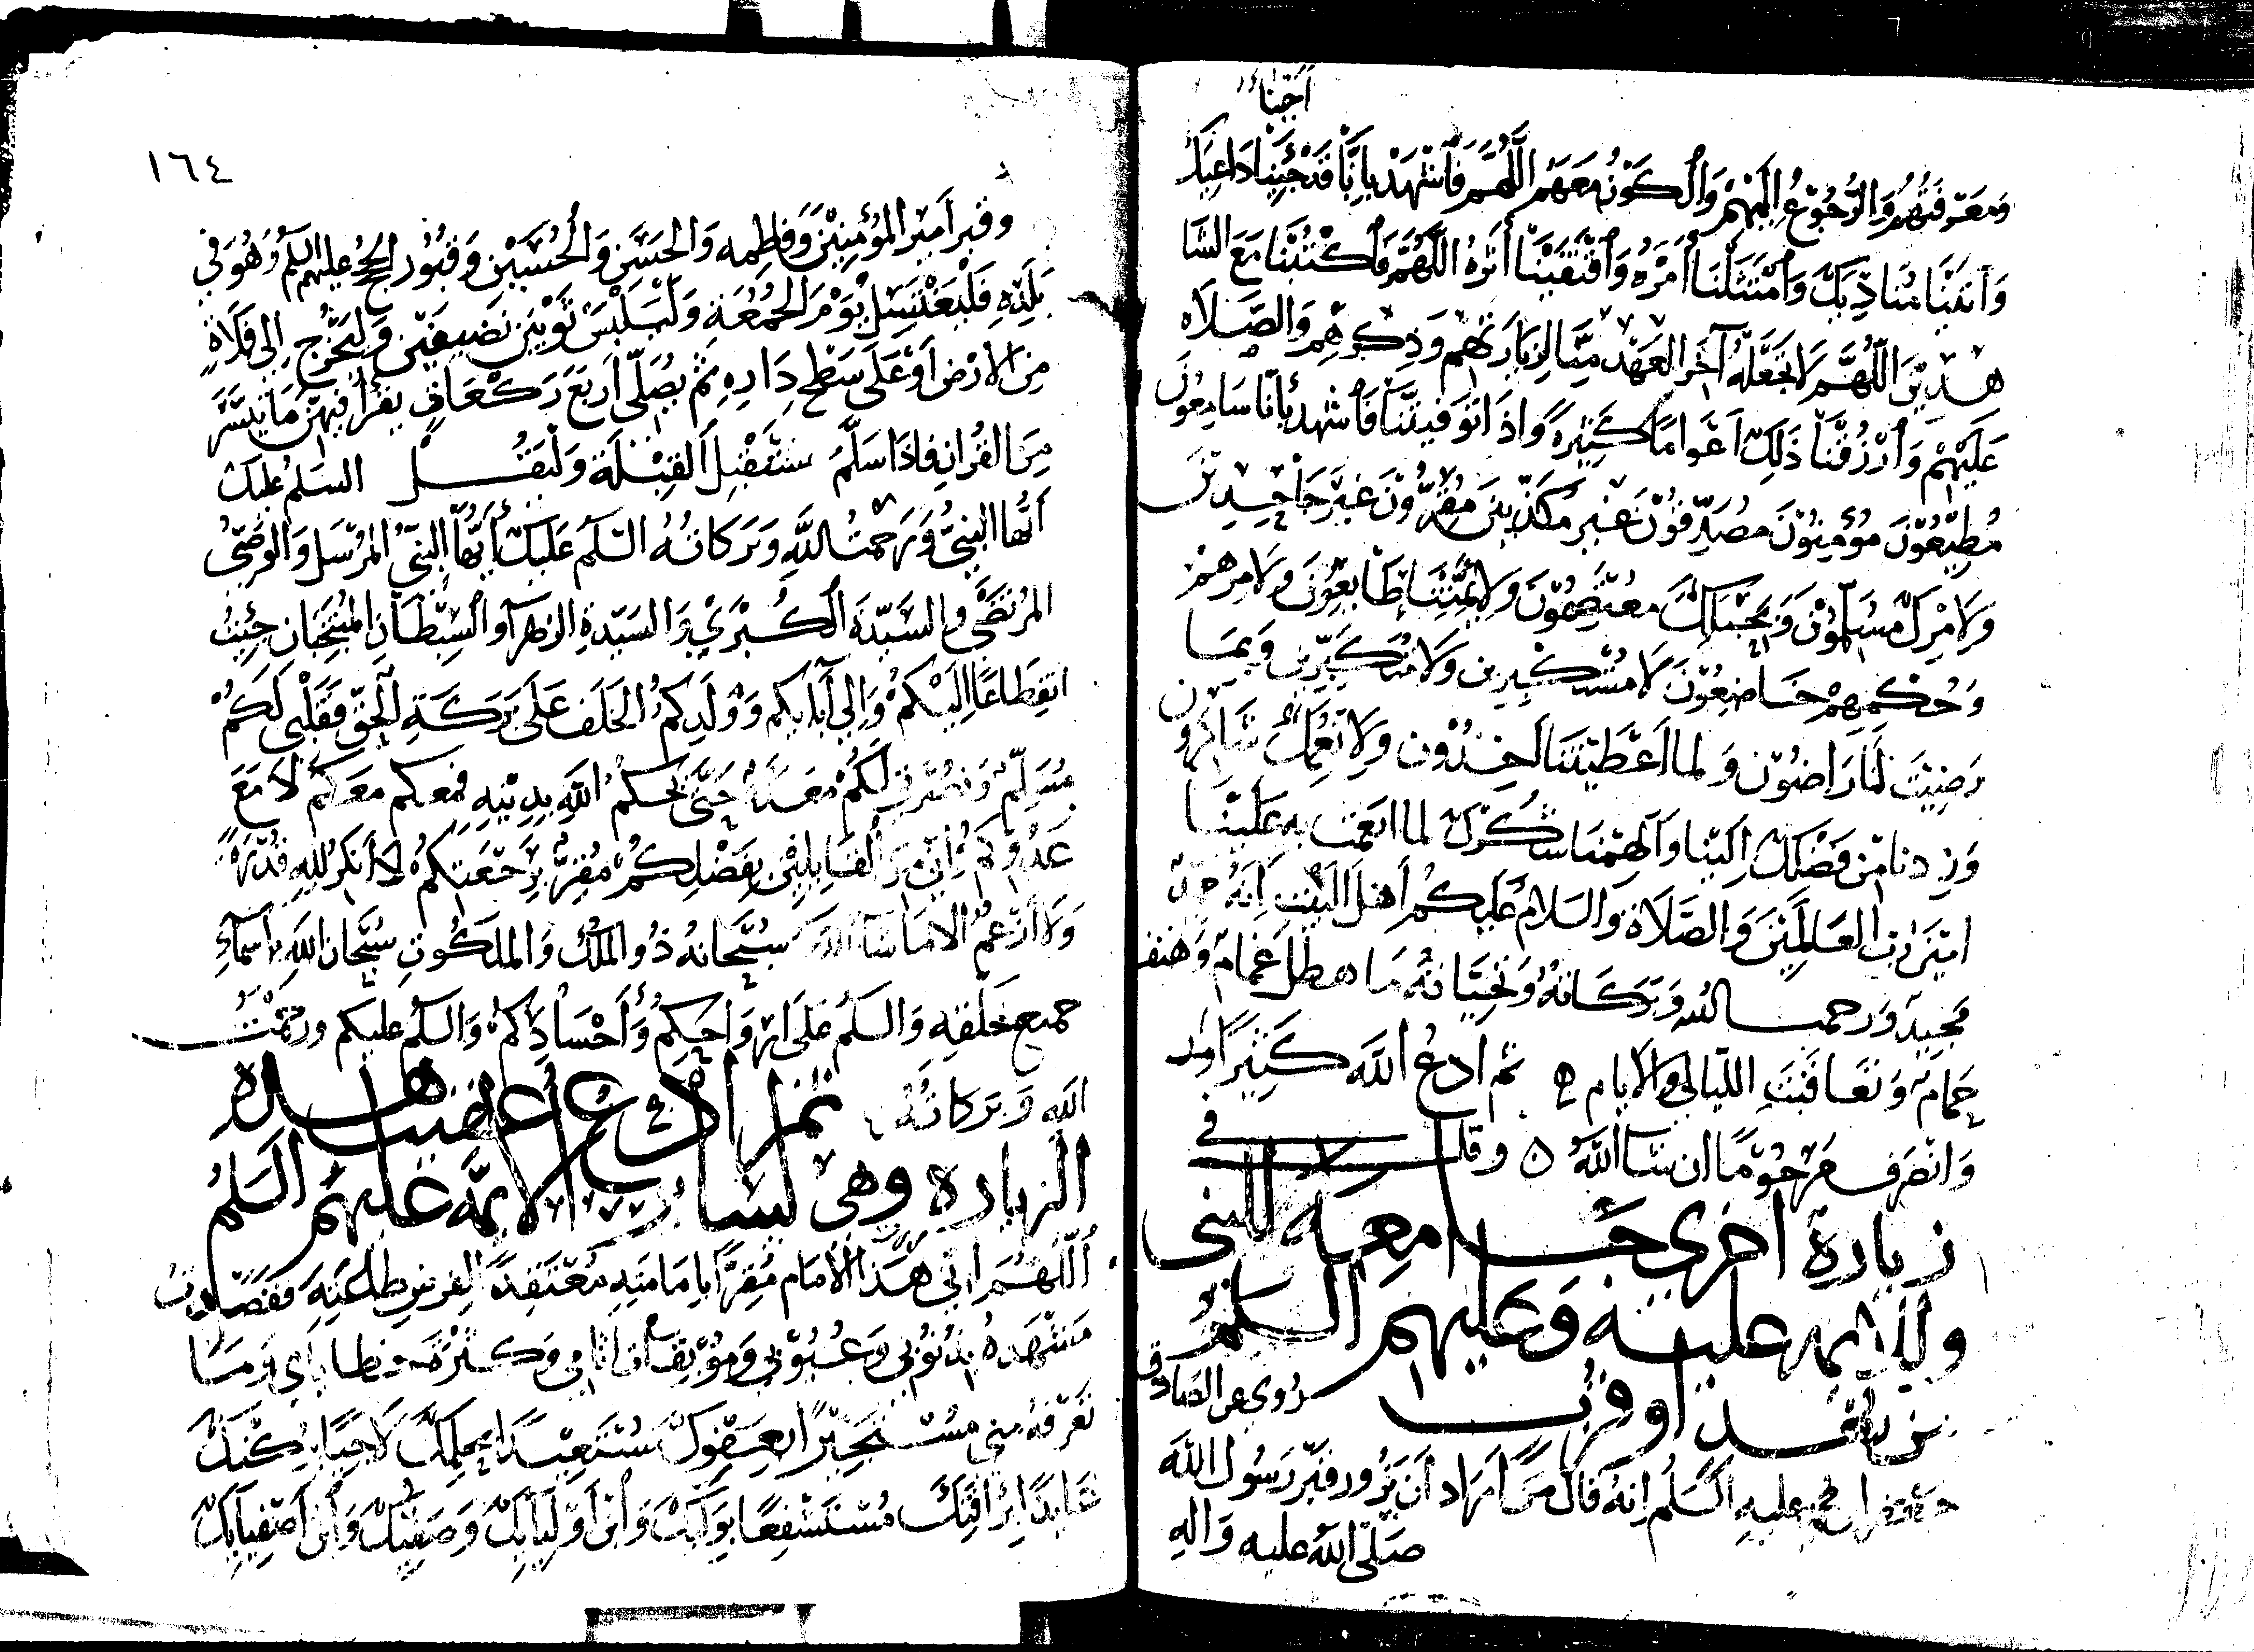 أجبنا
ومعرفتهم والرجوع إليهم والكون معهم اللهم فاشهد بانا قد جئنا داعيك
وأتينا مناديك وامتثلنا أمره واقتفينا أثره اللهم فاكتبنا مع الشا
هدين اللهم لا تجعله آخر العهد منا لزيارتهم وذكرهم والصلاه
عليهم وارزقنا ذلك اعواما كثيرة واذا توفيتنا فاشهد بأنا سامعون
مطيعون مؤمنون مصدقون غير مكذبين مقرون غير جاحدين
ولامرك مسلمون وبحبلك معتصمون ولائمتنا طايعون ولامرهم
وحكمهم خاضعون لا مستكبرين ولا متكبرين وبما
رضيت لنا راضون ولما اعطيتنا اخذون ولانعمك شاكرون
وزدنا من فضلك الينا وألهمنا شكرك لما انعمت به علينا
امين رب العالمين والصلاة والسلام عليكم اهل البيت انه حميد
مجيد ورحمت الله وبركاته وتحياته ما هطل غمام وهتف
حمام وتعاقبت الليالي والايام ثم ادع الله كثيرا
وانصرف مرحوما ان شا الله وقل في
زيارة اخرى جامعه للنبى
وللائمه عليه وعليهم السلم
من بعد او قرب روى عن الصادق
جعفر ابن محمد عليه السلم انه قال من اراد أن يزور قبر رسول الله
صلى الله عليه واله
١٦٤
وقبر أمير المؤمنين وفاطمه والحسن والحسين وقبور الحجج عليهم السلم وهو في
بلده فليغتسل يوم الجمعة وليلبس ثوبين نضيفين وليخرج الى فلاة
من الارض أو على سطح داره ثم يصلي اربع ركعات يقرأ فيهن ما تيسر
من القران فاذا سلم ستقبل القبلة وليقل السلم عليك
أيها النبي ورحمت الله وبركاته السلم عليك أيها النبي المرسل والوصي
المرتضى والسيدة الكبرى والسيدة الزهرآ والسبطان المنتجبان جئت
انقطاعا اليكم وإلى آبايكم وولدكم الخلف على بركة الحق فقلبي لكم
مسلم ونصرتي لكم معدة حتى يحكم الله بدينه فمعكم معكم لا مع
عدوكم اني من القايلين بفضلكم مقر برجعتكم لا أنكر لله قدرة
ولا أزعم الا ما شآ الله سبحانه ذو الملك والملكوت سبحان الله باسمآئه
جميع خلقه والسلم على ارواحكم وأجسادكم والسلم عليكم ورحمت
الله وبركاته ثم ادع عقيب هذه
الزياره وهى لساير الائمه عليهم السلم
اللهم اني هذا الامام مقرا بامامته معتقدا لفرض طاعته فقصدت
مشهده بذنوبي وعيوبي وموبقات اثامي وكثرة خطاياي وما
تعرفه مني مستجيرا بعفوك مستعيذا بحلمك لاجيا ركنك
عايذا برافتك مستشفعا بوليك وابن أوليايك وصفيك وابن أصفيايك